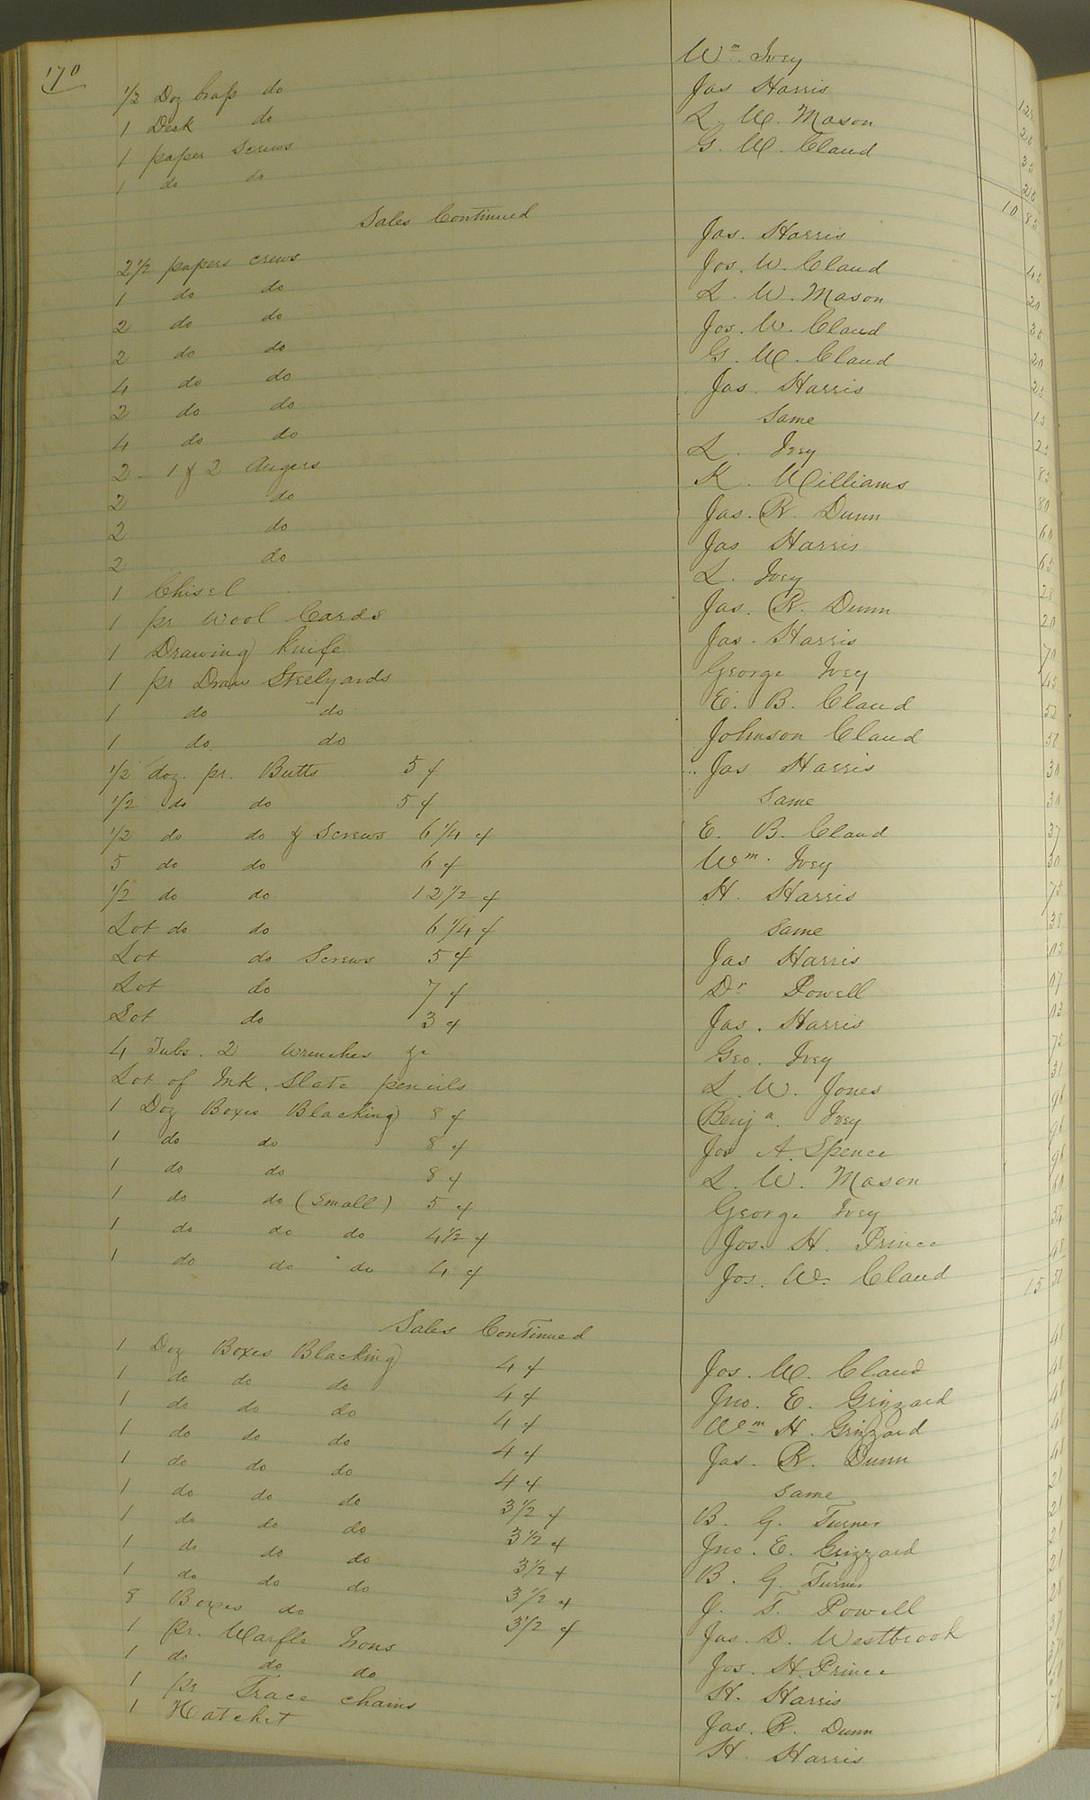 170
1/2 Doz brass do Wm Ivey
1 Desk do Jas Harris
1 paper Screws L. W. Mason
1 do do G. W. Claud
10 83
Sales Continued
2 1/2 papers crews Jas. Harris
1 do do Jos. W. Claud 20
2 do do L. W. Mason 30
2 do do Jos. W. Claud 20
4 do do G. W. Claud 25
2 do do Jas. Harris 15
4 do do Same 25
2 - 1 & 2 Augers L. Ivey 85
2 do K. Williams 80
2 do Jas. R. Dunn 60
2 do Jas Harris 65
1 Chisel L. Ivey 28
1 pr Wool Cards Jas. R. Dunn 20
1 Drawing Knife Jas. Harris 70
1 pr Draw Steelyards George Ivey 45
1 do do E. B. Claud 52
1 do do Johnson Claud 51
1/2 doz. pr. Butts 5 ¢ Jas Harris 30
1/2 do do 5 ¢ Same 30
1/2 do do & Screws 6 1/4 ¢ E. B. Claud 37
5 do do 6 ¢ Wm. Ivey 30
1/2 do do 12 1/2 ¢ H. Harris 75
Lot do do 6 1/4 ¢ Same 38
Lot do Screws 5 ¢ Jas Harris 05
Lot do 7 ¢ Dr Powell 07
Lot do 3 ¢ Jas. Harris 03
4 Tubs. 2 Wrenches &c Geo. Ivey 75
Lot of Ink, Slate pencils L. W. Jones 31
1 Doz Boxes Blacking 8 ¢ Benja. Ivey 96
1 do do 8 ¢ Jos A. Spence 96
1 do do 8 ¢ L. W. Mason 96
1 do do (Small) 5 ¢ George Ivey 60
1 do do do 4 1/2 ¢ Jos. H. Prince 54
1 do do do 4 ¢ Jos. W. Claud 48
15
Sales Continued
1 Doz Boxes Blacking 4 ¢ Jos. W. Claud 48
1 do do do 4 ¢ Jno. E. Grizzard 48
1 do do do 4 ¢ Wm H. Grizzard 48
1 do do do 4 ¢ Jas. R. Dunn 48
1 do do do 4 ¢ Same 48
1 do do do 3 1/2 ¢ B. G. Turner
1 do do do 3 1/2 ¢ Jno. E. Grizzard
1 do do do 3 1/2 ¢ B. G. Turner
1 do do do 3 1/2 ¢ J. T. Powell
8 Boxes do 3 1/2 ¢ Jas. D. Westbrook
1 pr. Warfle Irons Jos. H. Prince
1 do do do H. Harris
1 pr Trace chains Jas. R. Dunn
1 Hatchet H. Harris